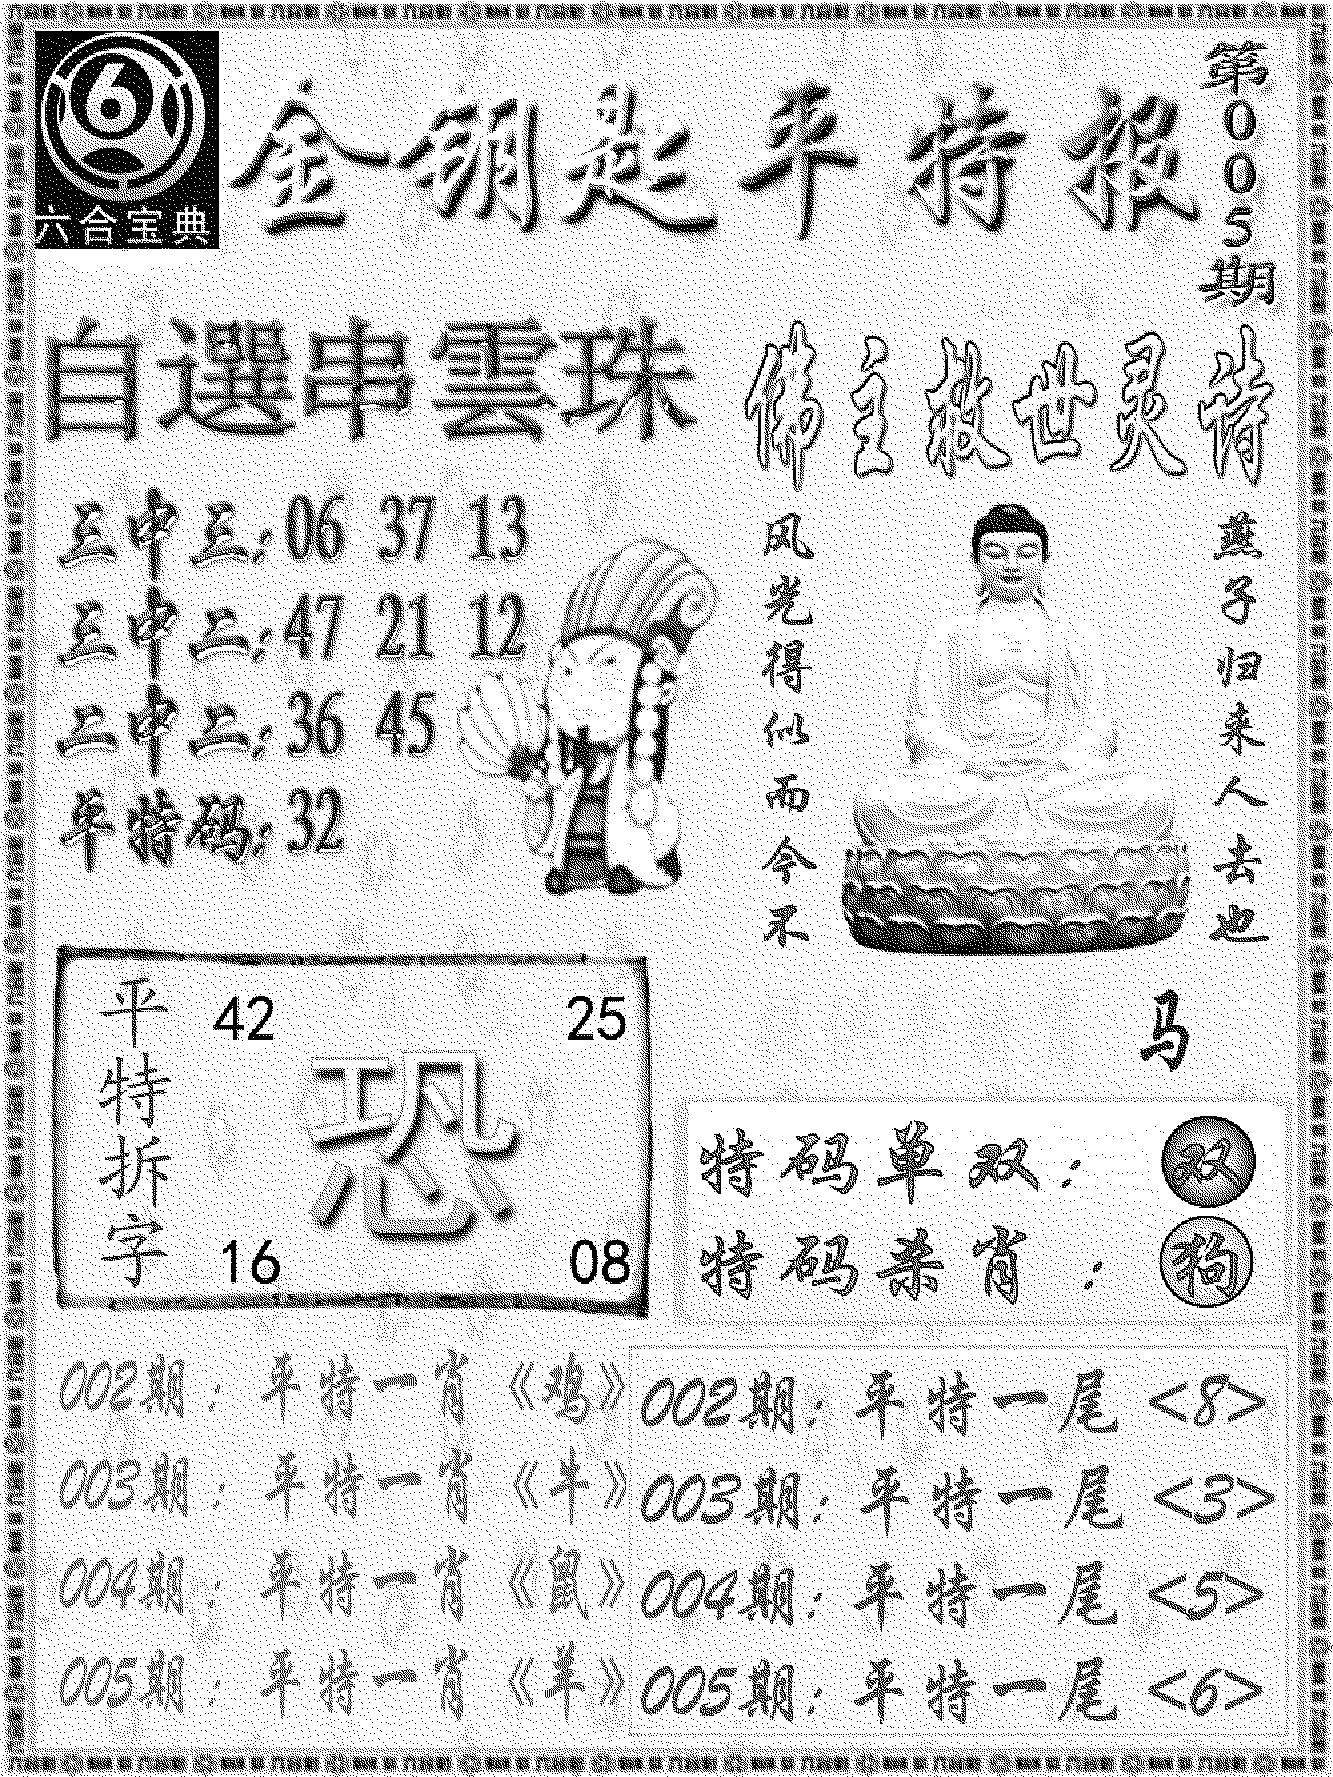 6
六合宝典
金钥匙平特报
第005期
自選串雲珠
三中三:06 37 13
三中二:47 21 12
二中二:36 45
平特码:32
佛主救世灵诗
燕子归来人去也
风光得似而今不
马
平特拆字
42 25
恐
16 08
特码单双:双
特码杀肖:狗
002期:平特一肖《鸡》
003期:平特一肖《牛》
004期:平特一肖《鼠》
005期:平特一肖《羊》
002期:平特一尾<8>
003期:平特一尾<3>
004期:平特一尾<5>
005期:平特一尾<6>